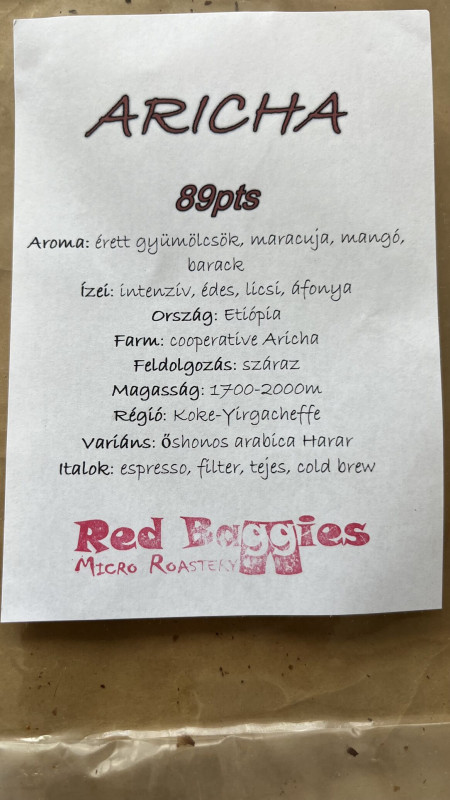 ARICHA
89pts
Aroma: érett gyümölcsök, maracuja, mangó,
barack
Ízei: intenzív, édes, licsi, áfonya
Ország: Etiópia
Farm: cooperative Aricha
Feldolgozás: száraz
Magasság: 1700-2000m
Régió: Koke-Yirgacheffe
Variáns: őshonos arabica Harar
Italok: espresso, filter, tejes, cold brew
Red Baggies
Micro Roastery